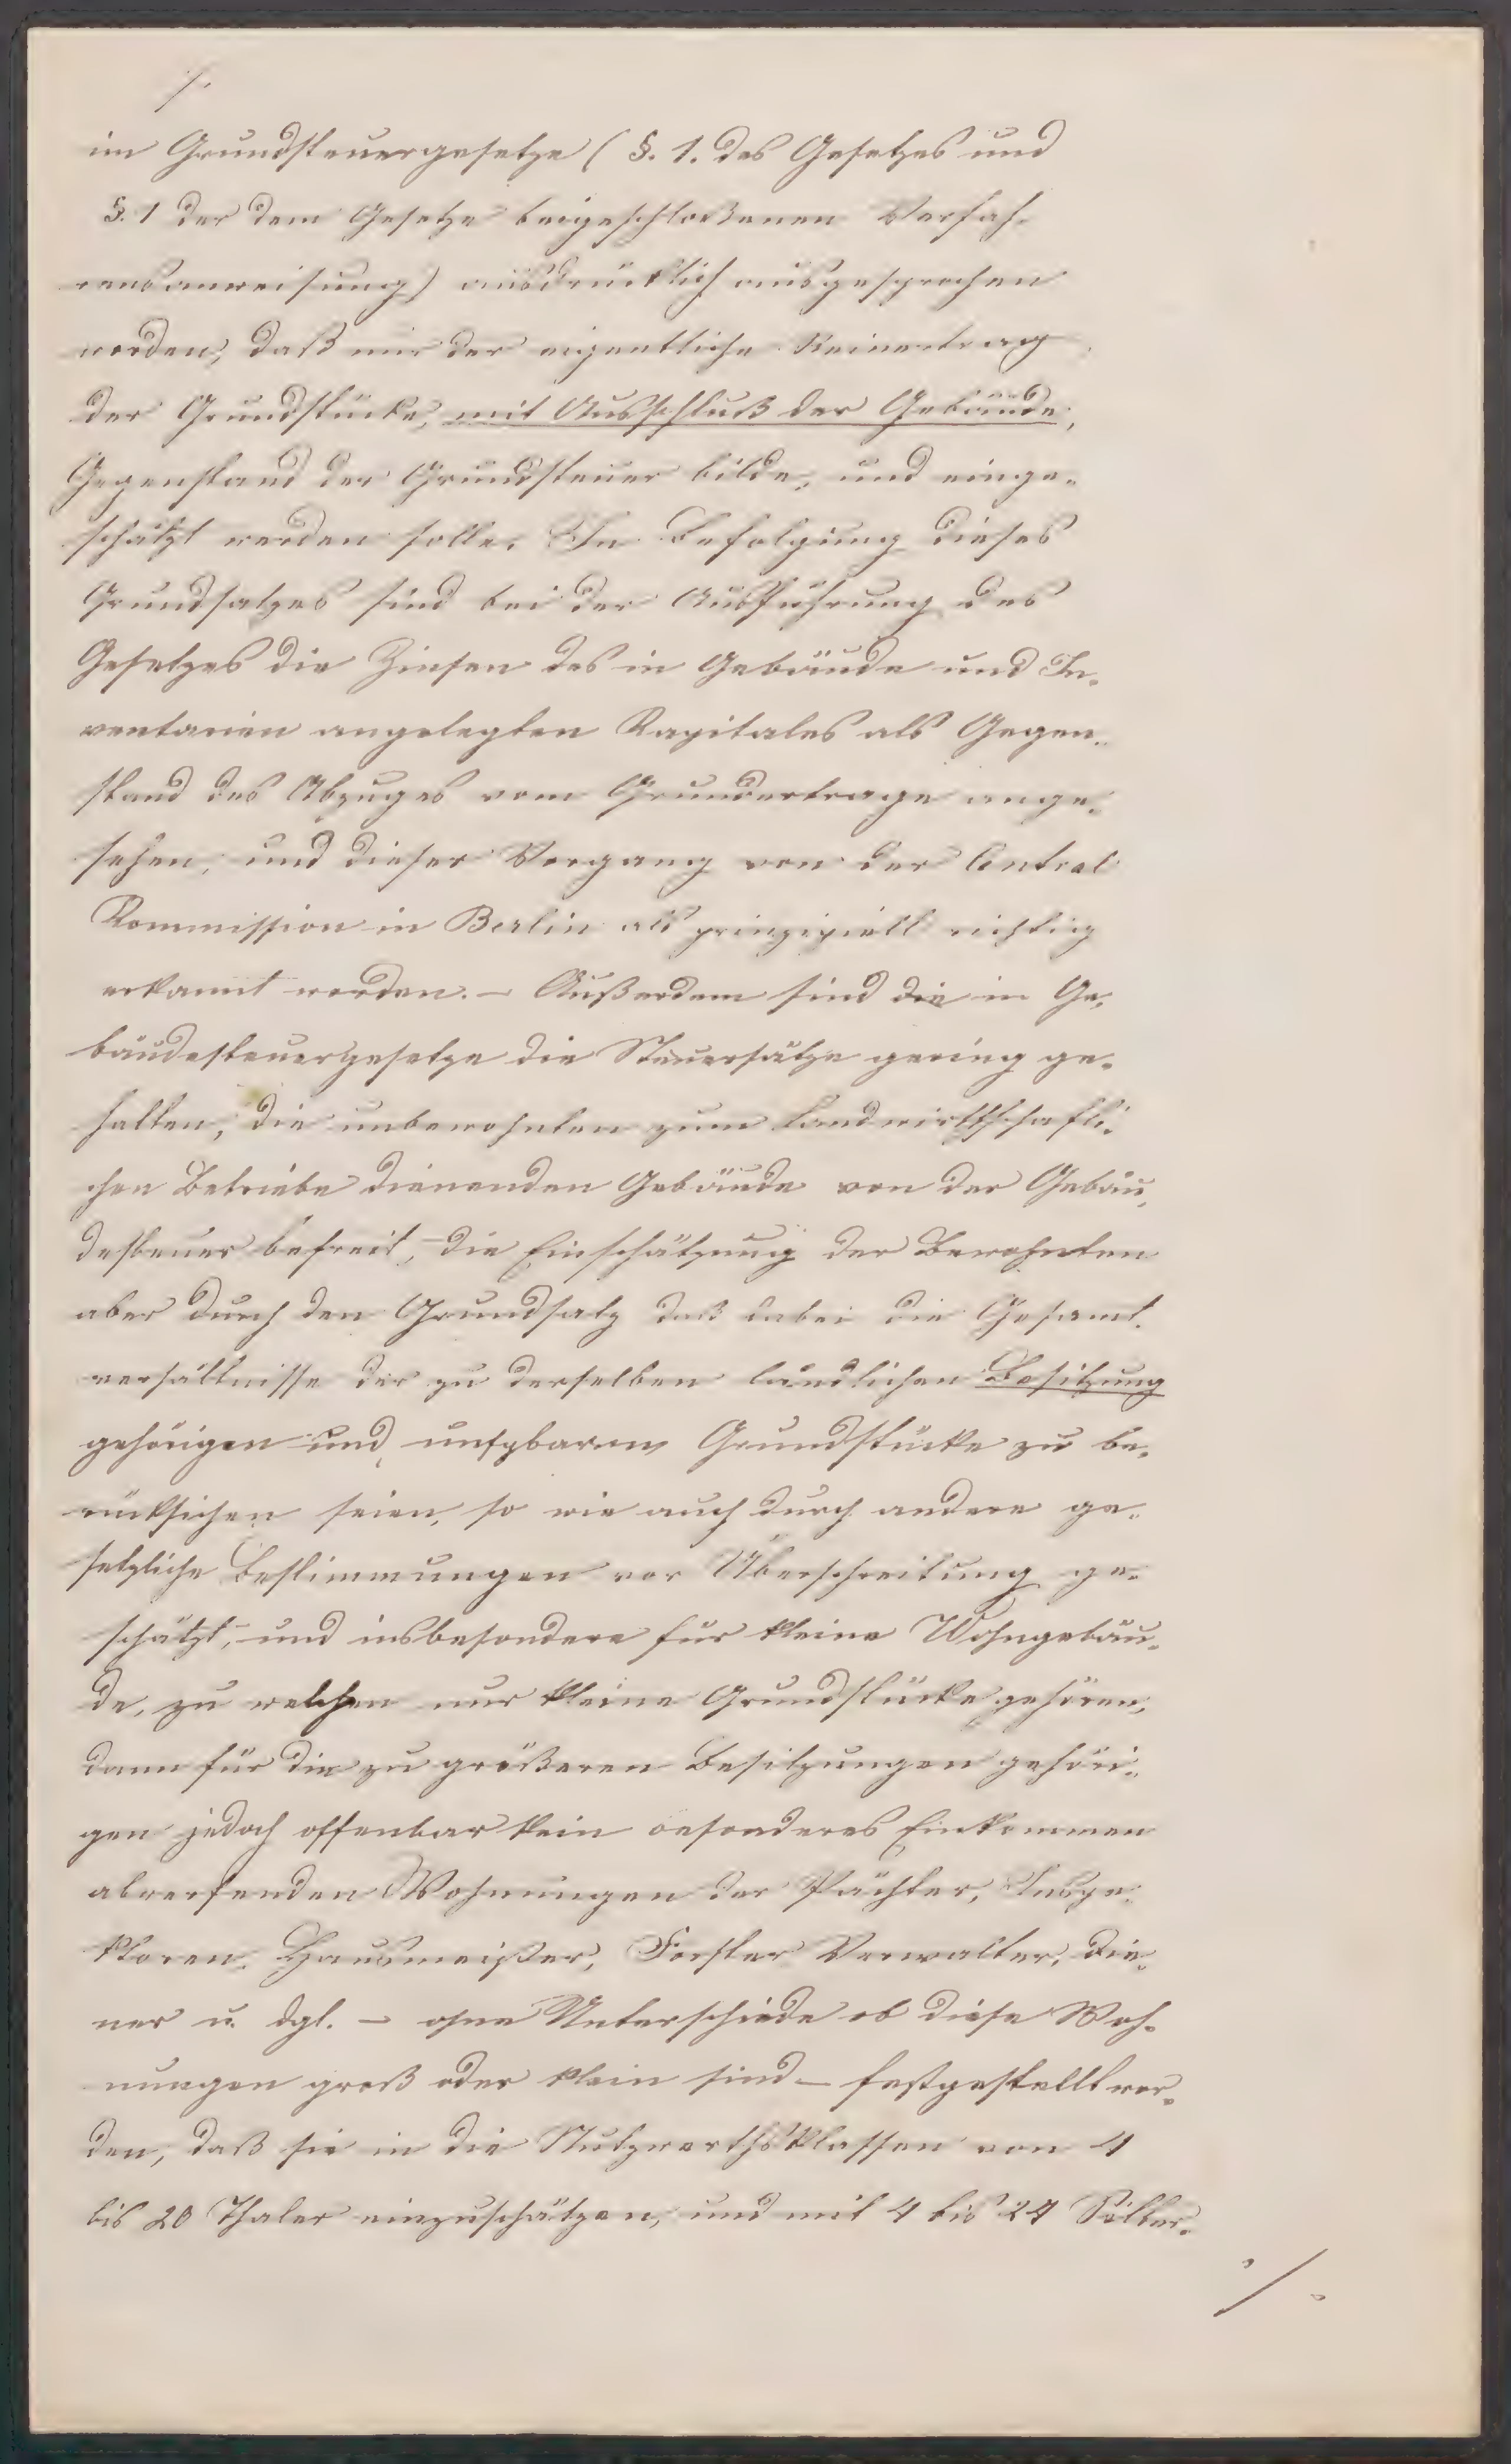 ./.
im Grundsteuergesetze (§. 1. des Gesetzes und
§. 1 der dem Gesetze beigeschloßenen Verfah-
rensanweisung) ausdrücklich ausgesprochen
worden, daß nur der eigentliche Reinertrag
der Grundstücke, mit Ausschluß der Gebäude,
Gegenstand der Grundsteuer bilde, und einge-
schätzt werden solle. In Befolgung dieses
Grundsatzes sind bei der Ausführung des
Gesetzes die Zinsen des in Gebäude und In-
ventarien angelegten Kapitales als Gegen-
stand des Abzuges vom Grundertrage ange-
sehen, und dieser Vorgang von der Central
Kommission in Berlin als prinzipiell richtig
erkannt worden. – Außerdem sind die im Ge-
bäudesteuergesetze die Steuersätze gering ge-
halten, die unbewohnten zum landwirthschaftli-
chen Betriebe dienenden Gebäude von der Gebäu-
desteuer befreit, die Einschätzung der Bewohnten
aber durch den Grundsatz daß dabei die Gesamt-
verhältnisse der zu derselben ländlichen Besitzung
gehörigen und nutzbaren Grundstücke zu be-
rücksichen seien, so wie auch durch andere ge-
setzliche Bestimmungen vor Überschreitung ge-
schützt, und insbesondere für kleine Wohngebäu-
de, zu welchen nur kleine Grundstücke gehören,
dann für die zu größeren Besitzungen gehöri-
gen jedoch offenbar kein besonderes Einkommen
abwerfenden Wohnungen der Pächter, Inspe-
ktoren, Hausmeister, Förster Verwalter, Die-
ner u. dgl. – ohne Unterschiede ob diese Woh-
nungen groß oder klein sind – festgestellt wor-
den, daß sie in die Nutzwerthsklassen von 4
bis 20 Thaler einzuschätzen, und mit 4 bis 24 Silber-
./.